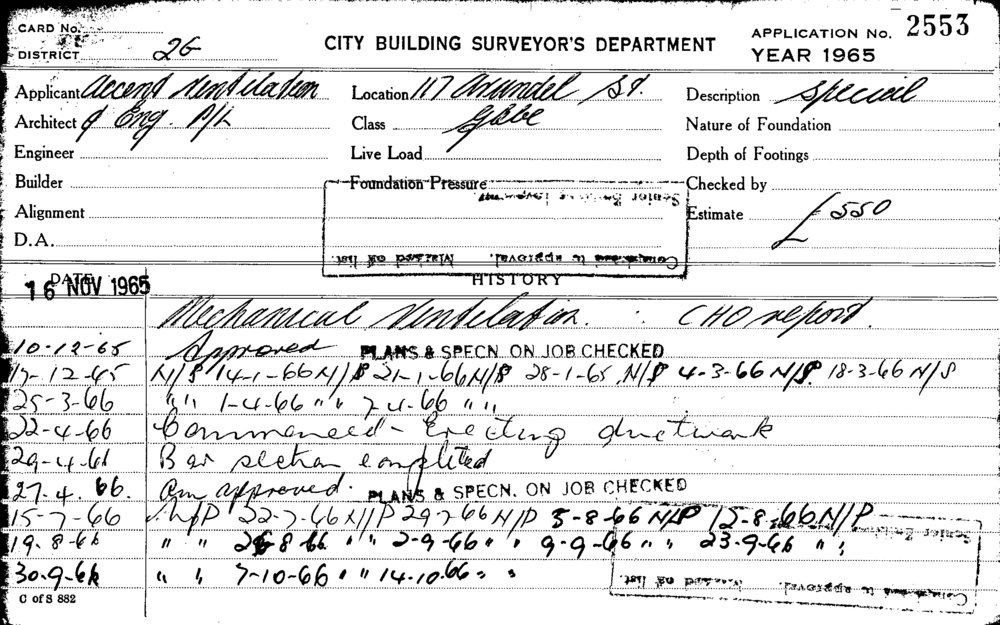 CARD No.
DISTRICT 2G
CITY BUILDING SURVEYOR'S DEPARTMENT
APPLICATION No. 2553
YEAR 1965
Applicant Accent Ventilation
Location 117 Arundel St.
Description Special
Architect & Eng. P/L
Class Glebe
Nature of Foundation
Engineer
Live Load
Depth of Footings
Builder
Foundation Pressure
Checked by
Alignment
Senior Building
Estimate £550
D.A.
DATE
HISTORY
16 NOV 1965
Mechanical Ventilation. CHO report.
10-12-65 Approved PLANS & SPECN. ON JOB CHECKED
17-12-65 N/S 14-1-66 N/S 21-1-66 N/S 28-1-65 N/S 4-3-66 N/S 18-3-66 N/S
25-3-66 " " 1-4-66 " " 7-4-66 " "
22-4-66 Commenced - Erecting ductwork
29-4-66 Bar section completed
27.4.66. Am approved. PLANS & SPECN. ON JOB CHECKED
15-7-66 N/P 22-7-66 N/P 29-7-66 N/P 5-8-66 N/P 12-8-66 N/P
19.8-66 " " 26-8-66 " " 2-9-66 " " 9-9-66 " " 23-9-66 " "
30.9-66 " " 7-10-66 " " 14-10.66 " "
C of S 882